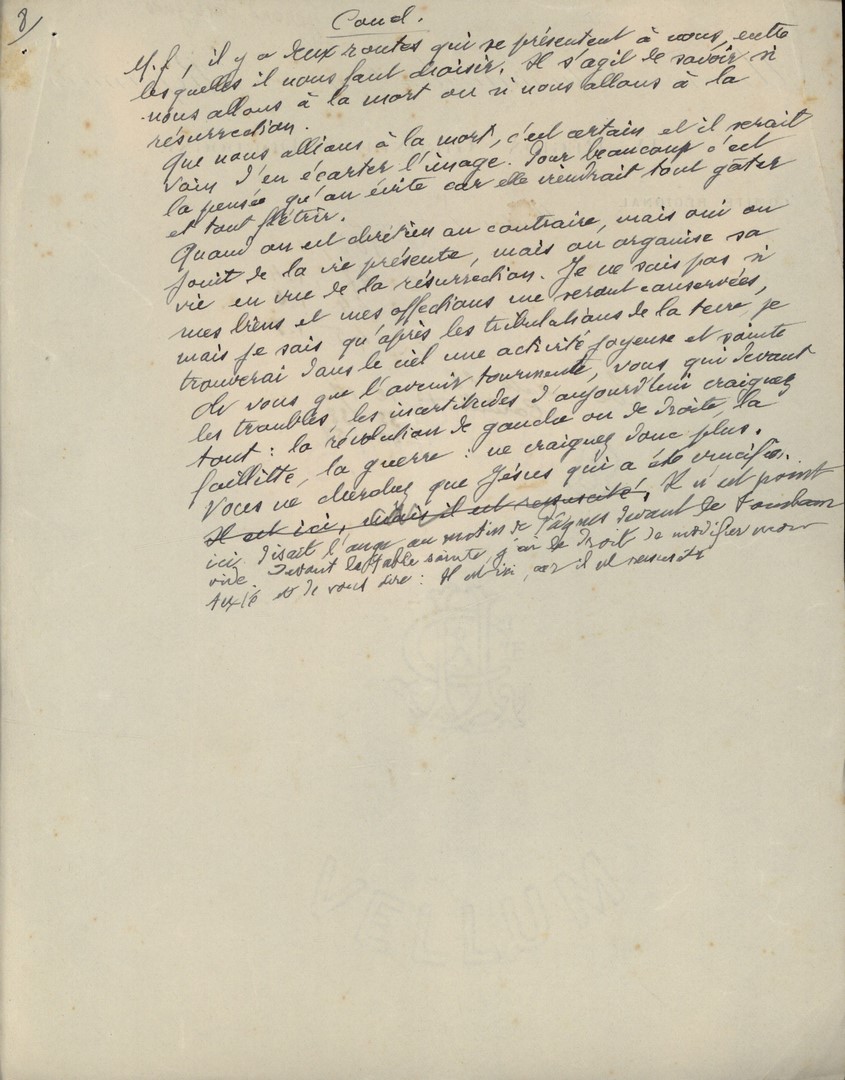 8/
Concl.
M.f, il y a deux routes qui se présentent à nous, entre
lesquelles il nous faut choisir. Il s'agit de savoir si
nous allons à la mort ou si nous allons à la
résurrection.
Que nous allions à la mort, c'est certain et il serait
vain d'en écarter l'image. Pour beaucoup c'est
la pensée qu'on évite car elle viendrait tout gâter
et tout flétrir.
Quand on est chrétien au contraire, mais oui on
jouit de la vie présente, mais on organise sa
vie en vue de la résurrection. Je ne sais pas si
mes liens et mes affections me seront conservées,
mais je sais qu'après les tribulations de la terre, je
trouverai dans le ciel une activité joyeuse et sainte
Or vous que l'avenir tourmente, vous qui devant
les troubles, les incertitudes d'aujourd'hui craignez
tout : la révolution de gauche ou de droite, la
faillitte, la guerre : ne craignez donc plus.
Vous ne cherchez que Jésus qui a été crucifié.
Il est ici, mais il est ressuscité. Il n'est point
ici disait l'ange au matin de Pâques devant le tombeau
vide. Devant la table sainte, j'ai le droit de modifier mon
texte et de vous dire : Il est ici, car il est ressuscité
VELLUM